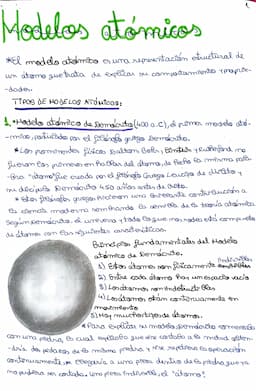 Modelos atómicos
*El modelo atómico es una representación estructural de
un átomo que trata de explicar su comportamiento y propie-
dades.
TIPOS DE MODELOS ATÓMICOS:
1. *Modelo atómico de Demócrito (400 a.C), el primer modelo ató-
mico, postulado por el filósofo griego Demócrito.
*Los prominentes físicos Dalton, Bohr, y Rutherford no
fueron los primeros en hablar del átomo, de hecho la misma pala-
bra "átomo" fue creada por el filósofo Griego Leucipo de Mileto y
su discípulo Demócrito 450 años antes de
*Estos filósofos griegos hicieron una contribución a
la ciencia moderna sembrando la semilla de la teoría atómica
Según Demócrito, el universo y todo lo que nos rodea está compuesto
de átomos con las siguientes características.
Principios fundamentales del Modelo
atómico de Demócrito.
1) Estos átomos son físicamente indivisibles
2) Entre cada átomo hay un espacio vacío
3) Los átomos son indestructibles
4) Los átomos están continuamente en
movimiento
5) Hay muchos tipos de átomos.
*Para explicar su modelo Demócrito comenzó
con una piedra, la cual explicó que si se cortaba a la mitad obten-
dría dos pedazos de la misma piedra, y si se repitiera la operación
continuamente se llegaría a una pieza dentro de la piedra que ya
no pudiera ser cortada. Una pieza indivisible, el "átomo"